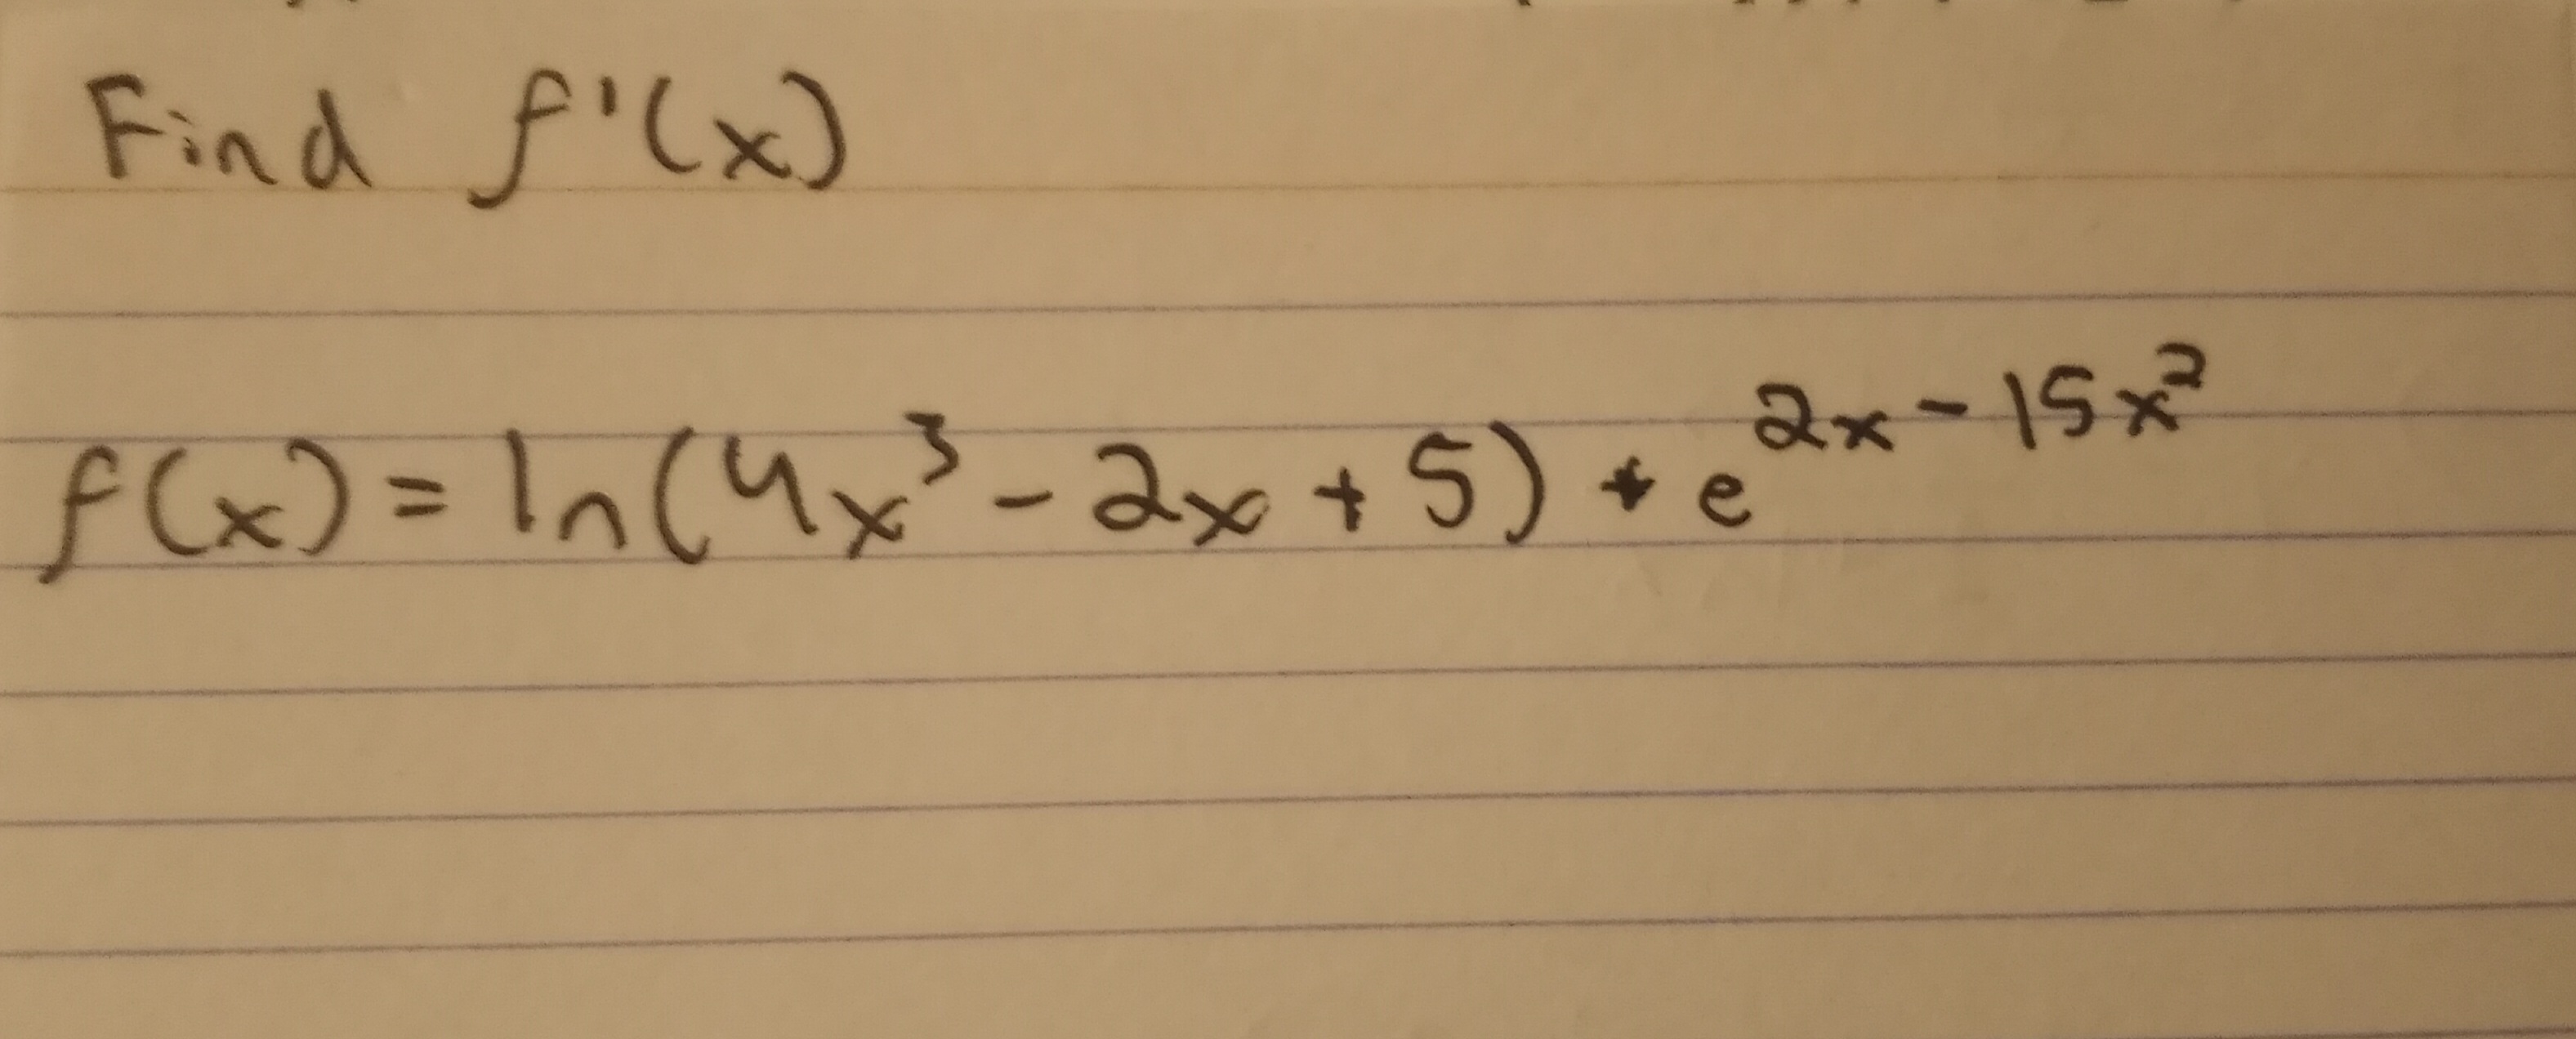 Find f'(x)
f(x) = ln(4x³ - 2x + 5) + e^{2x - 15x²}